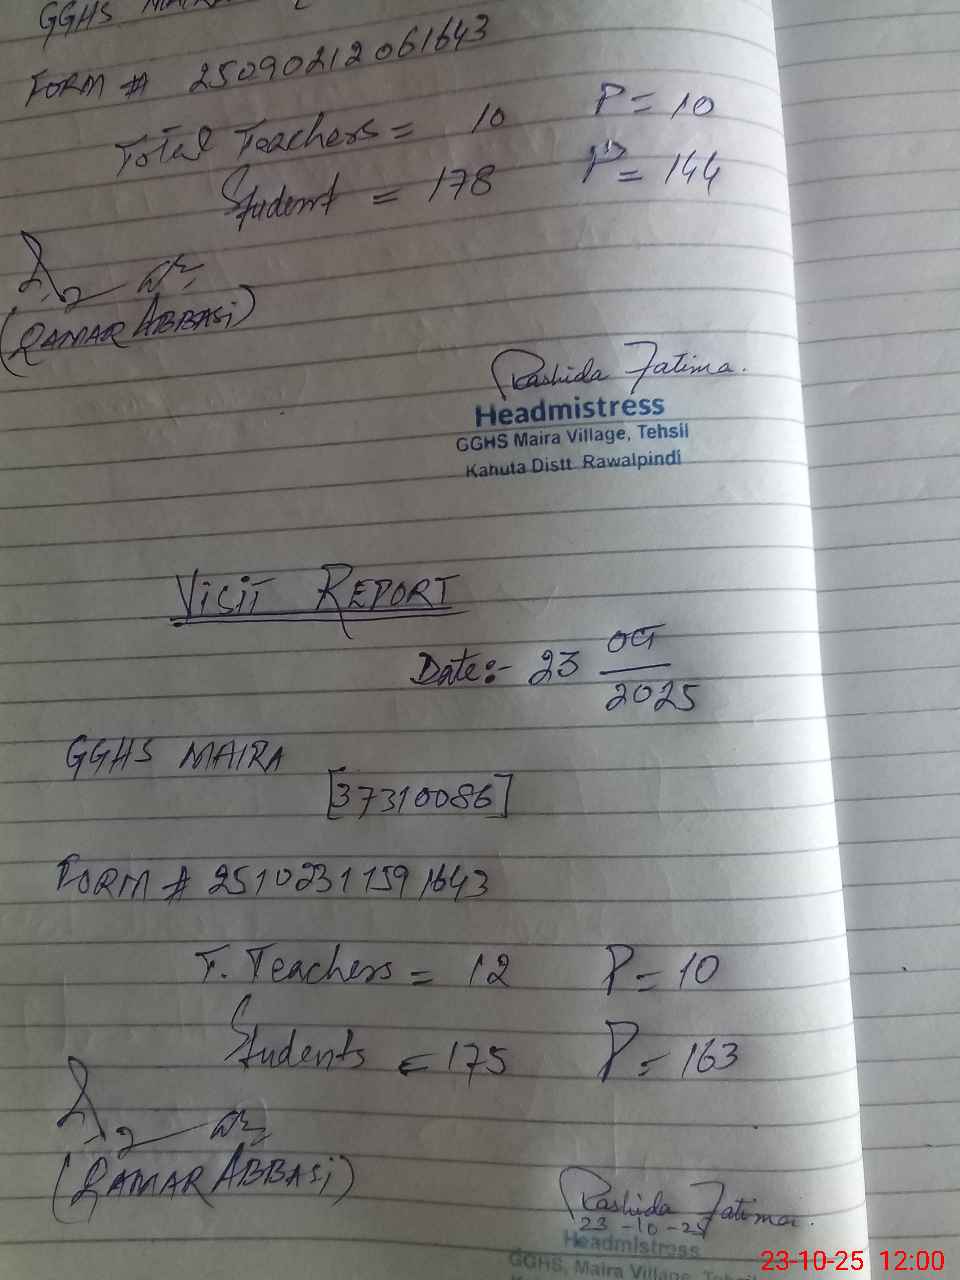 GGHS MAIRA
FORM # 25090212061643
Total Teachers = 10 P = 10
Student = 178 P = 144
(QAMAR ABBASi)
Rashida Fatima.
Headmistress
GGHS Maira Village, Tehsil
Kahuta Distt. Rawalpindi
VISIT REPORT
Date:- 23 OCT
2025
GGHS MAIRA
[37310086]
FORM # 25102311591643
T. Teachers = 12 P = 10
Students = 175 P = 163
(QAMAR ABBASi)
Rashida Fatima.
23-10-25
Headmistress
GGHS, Maira Village, Tehsil
23-10-25 12:00